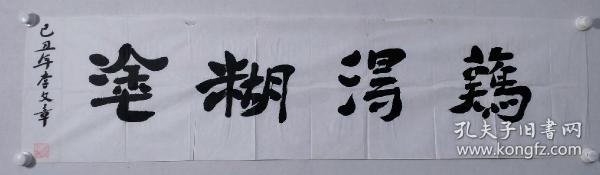 難得糊塗
己丑年李文章
孔夫子旧书网
www.kongfz.com